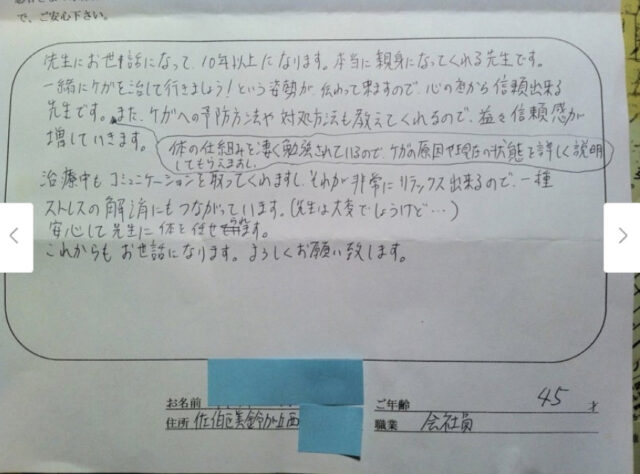 で、ご安心下さい。
先生にお世話になって、10年以上になります。本当に親身になってくれる先生です。
一緒にケガを治して行きましょう!という姿勢が、伝わって来ますので、心の底から信頼出来る
先生です。また、ケガへの予防方法や対処方法も教えてくれるので、益々信頼感が
増していきます。
体の仕組みを凄く勉強されているので、ケガの原因や現在の状態を詳しく説明
してもらえますし、
治療中もコミュニケーションを取ってくれますし、それが非常にリラックス出来るので、一種
ストレスの解消にもつながっています。(先生は大変でしょうけど…)
安心して先生に体を任せます。
これからもお世話になります。よろしくお願い致します。
お名前
ご年齢 45 才
住所 佐伯区美鈴が丘西
職業 会社員